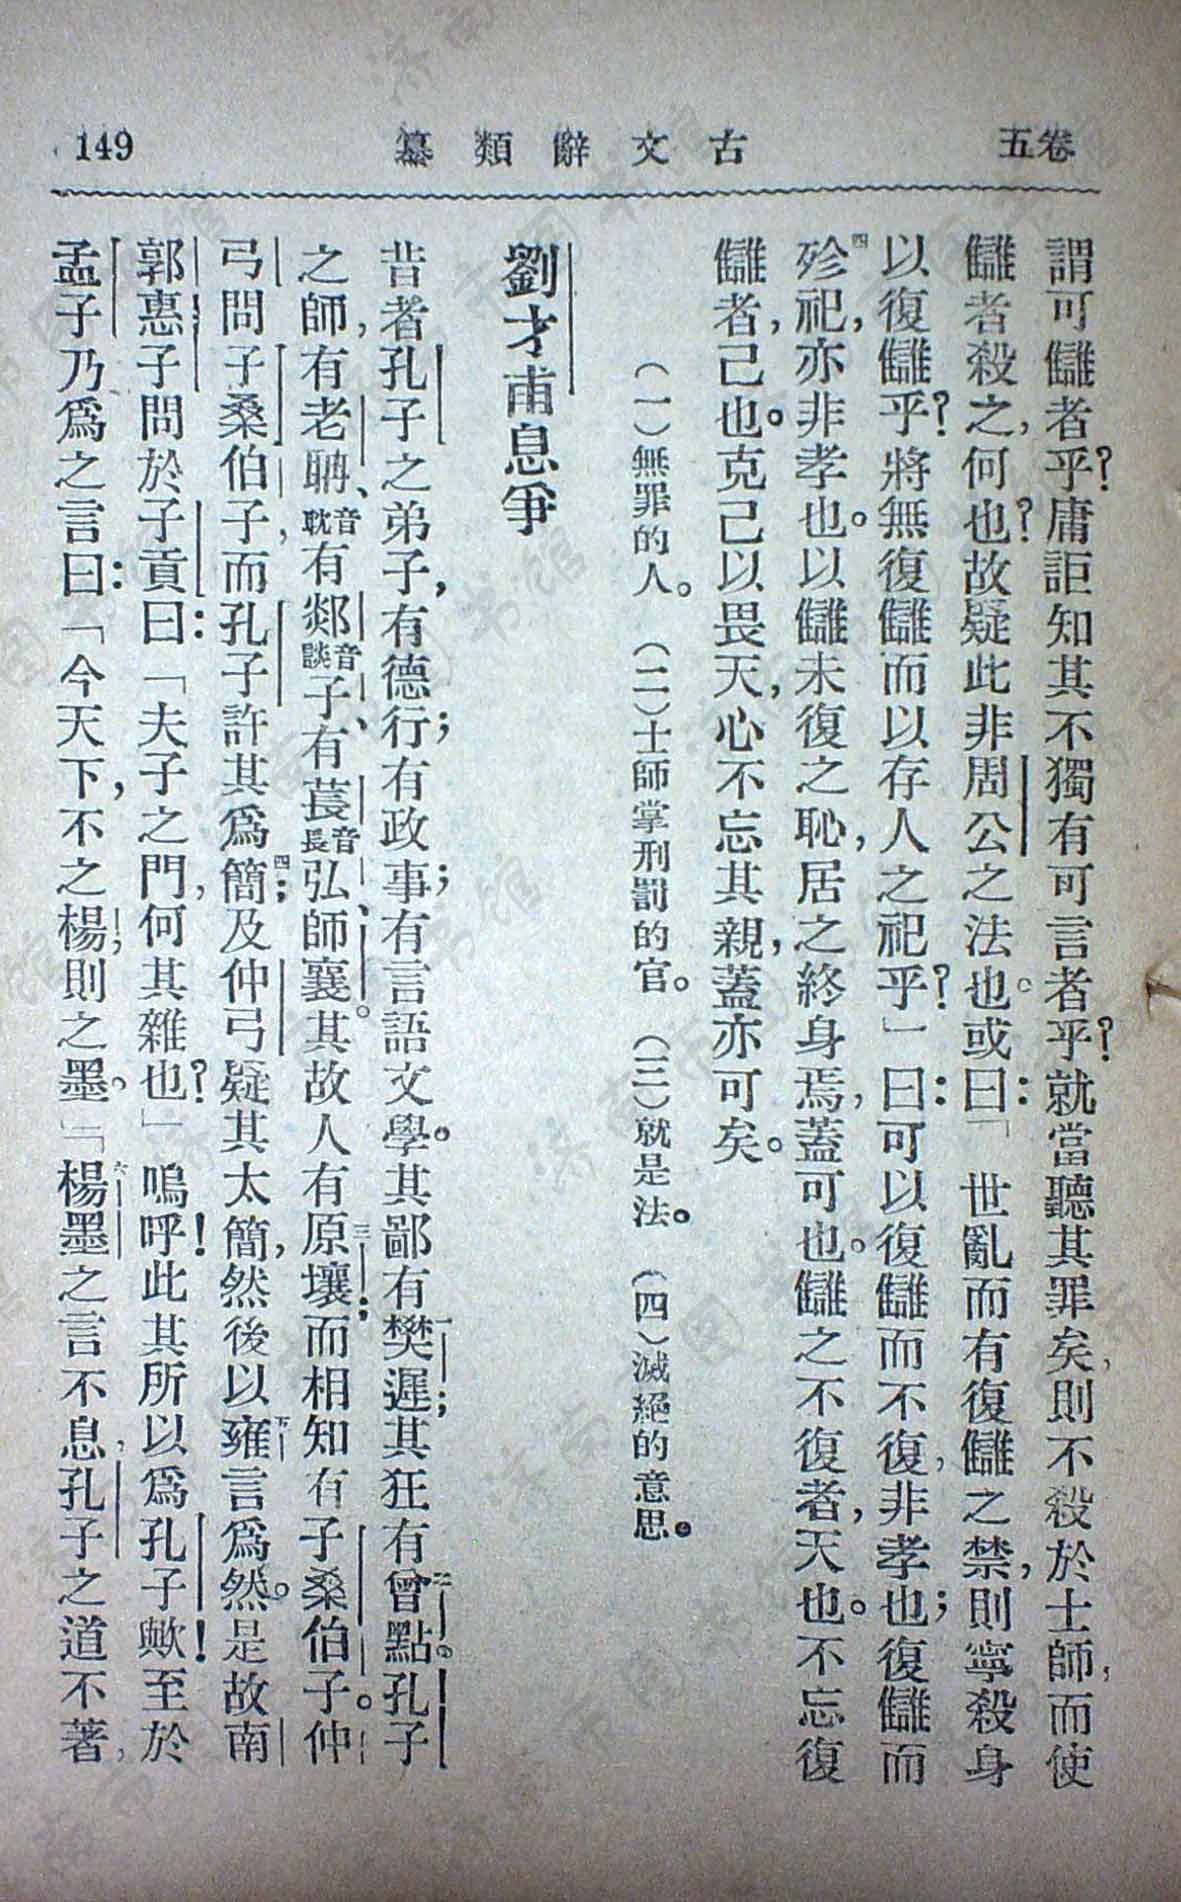 卷五
古文辭類纂
149
謂可讎者乎?庸詎知其不獨有可言者乎?就當聽其罪矣,則不殺於士師,而使
讎者殺之,何也?故疑此非周公之法也。或曰:「世亂而有復讎之禁,則寧殺身
以復讎乎?將無復讎而以存人之祀乎?」曰:可以復讎而不復,非孝也;復讎而
殄四祀,亦非孝也。以讎未復之恥,居之終身焉,蓋可也。讎之不復者,天也。不忘復
讎者,己也。克己以畏天,心不忘其親,蓋亦可矣。
(一)無罪的人。 (二)士師掌刑罰的官。 (三)就是法。 (四)滅絕的意思。
劉才甫息爭
昔者孔子之弟子,有德行;有政事;有言語文學。其鄙有樊遲一;其狂有曾點二。孔子
之師,有老聃、音耽有郯音談子、有萇音長弘、師襄。其故人有原壤三;而相知有子桑伯子。仲
弓問子桑伯子,而孔子許其爲簡四;及仲弓疑其太簡,然後以雍五言爲然。是故南
郭惠子問於子貢曰:「夫子之門,何其雜也?」嗚呼!此其所以爲孔子歟!至於
孟子乃爲之言曰:「今天下,不之楊,則之墨。」「楊墨六之言不息,孔子之道不著,